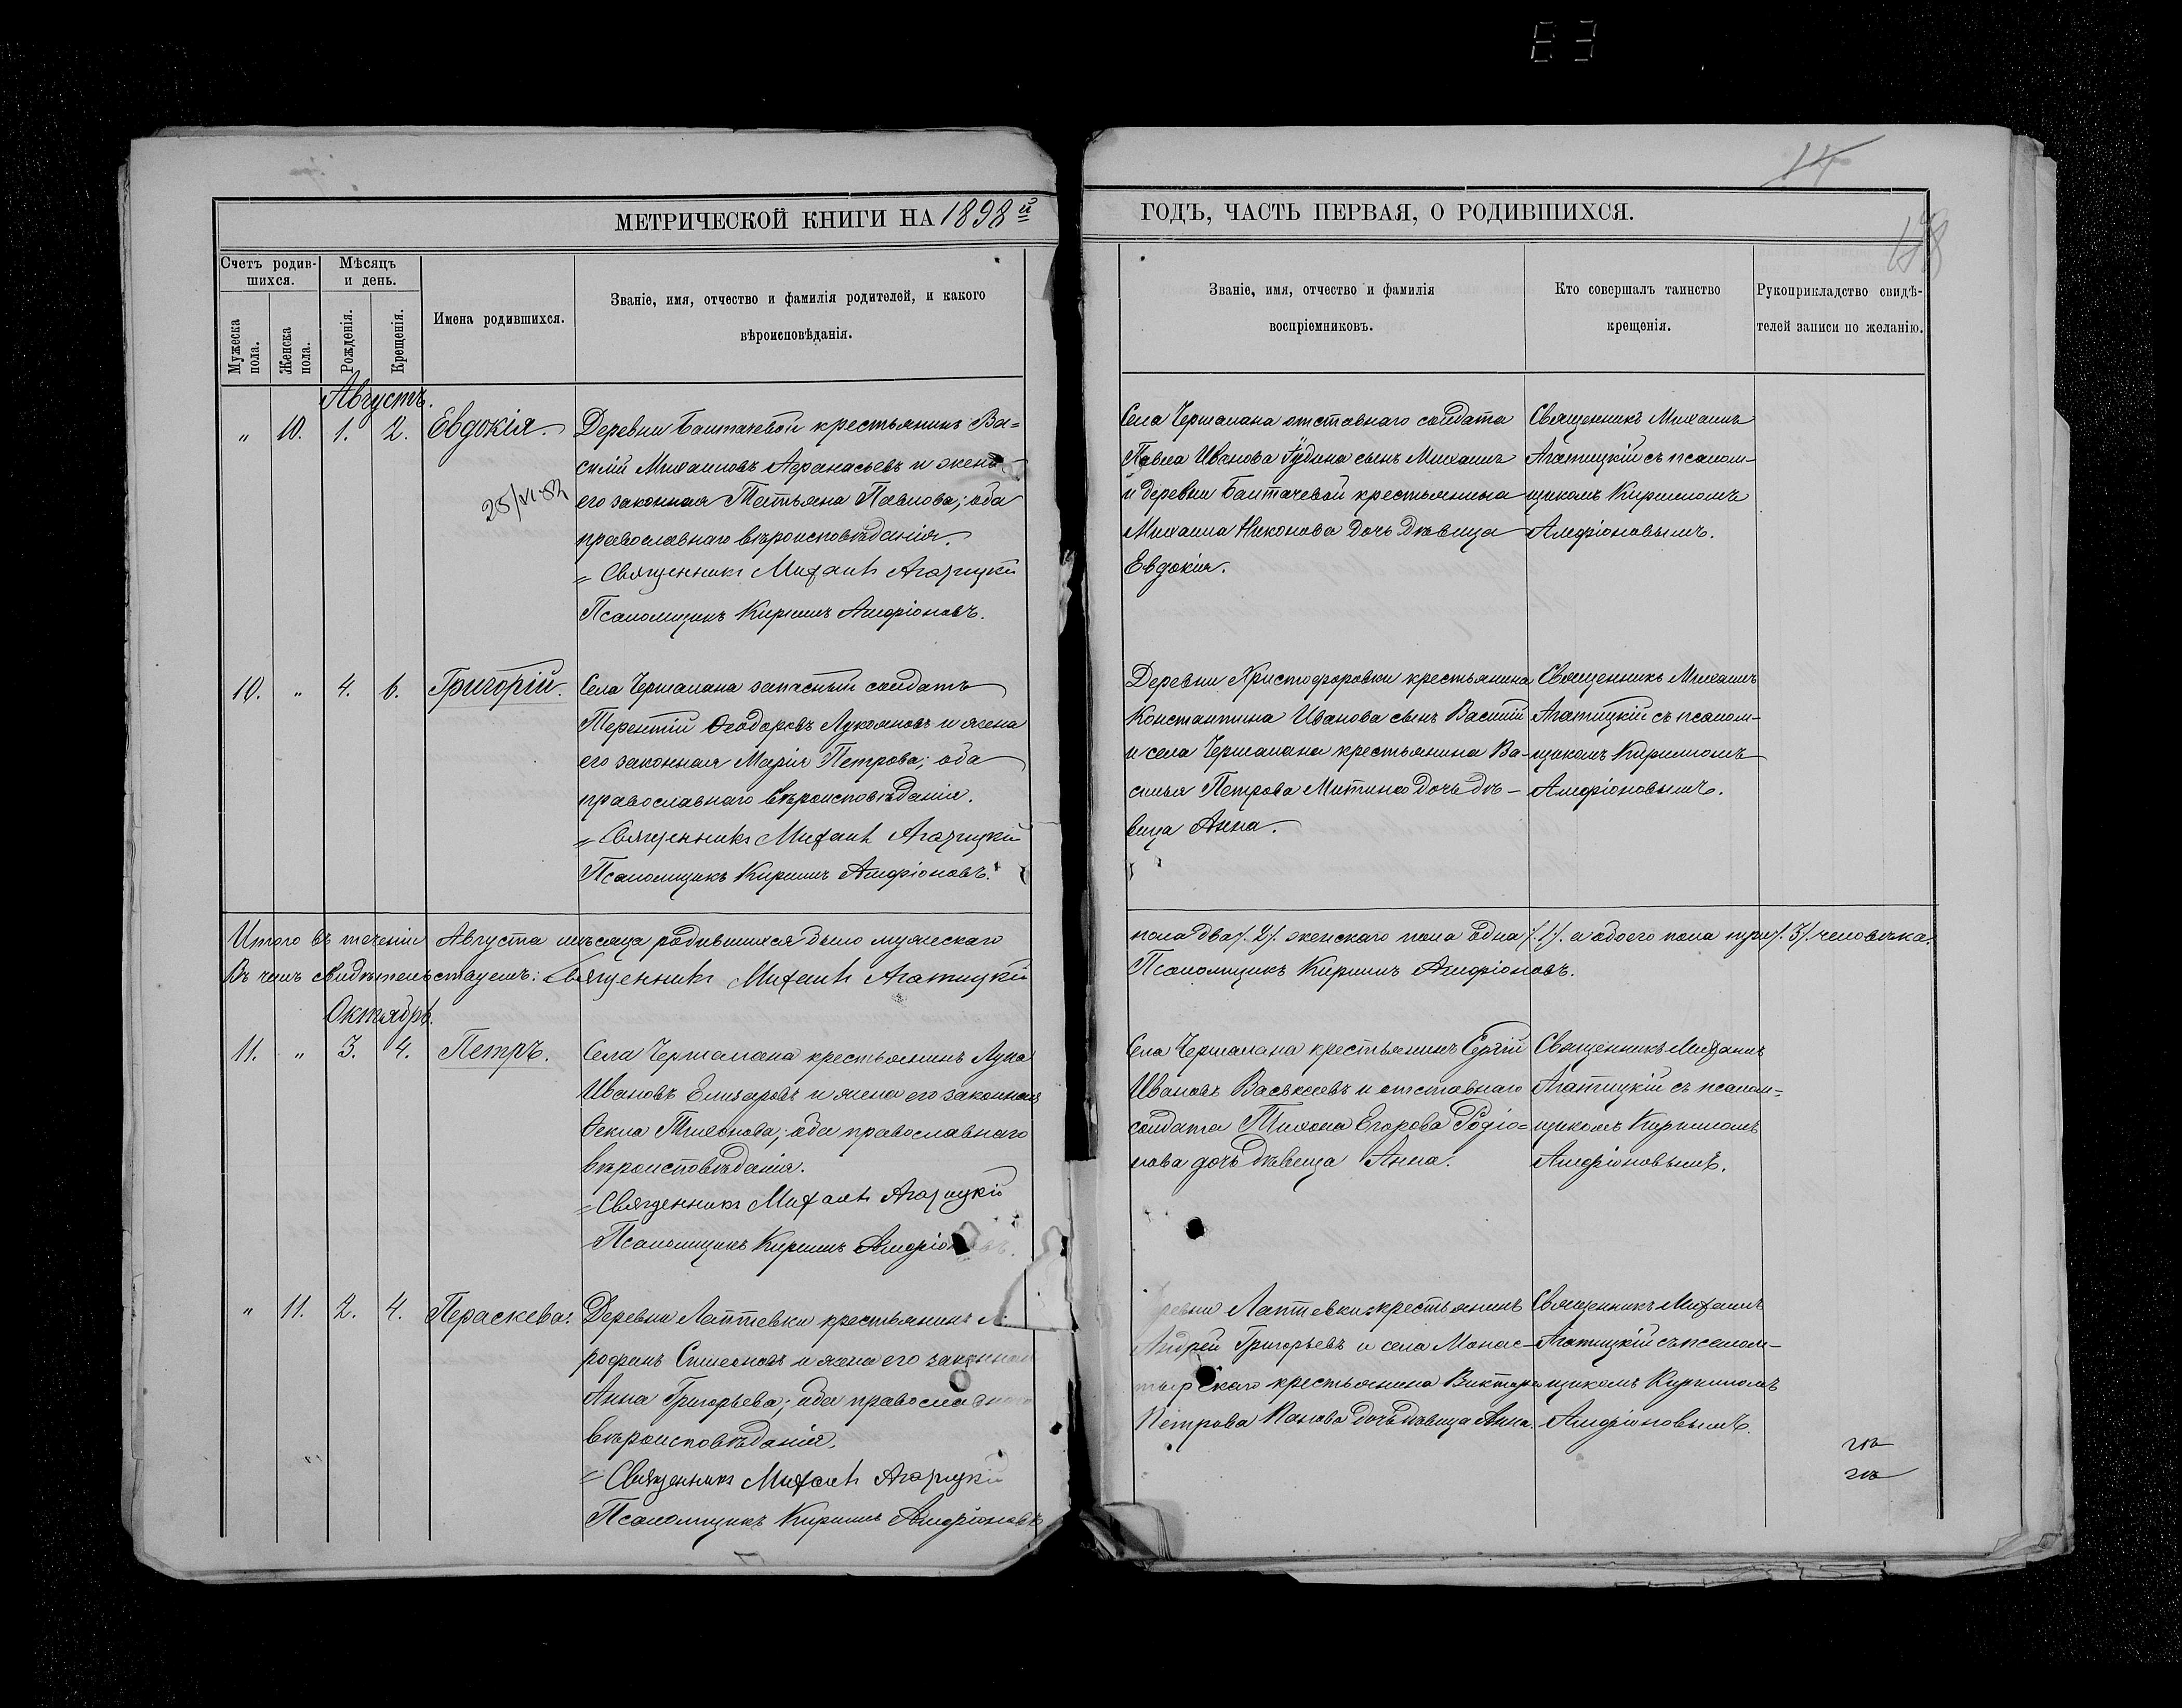 14
158
МЕТРИЧЕСКОЙ КНИГИ НА 1898 й
ГОДЪ, ЧАСТЬ ПЕРВАЯ, О РОДИВШИХСЯ.
Счетъ родив-
шихся.
Мѣсяцъ
и день.
Мужеска
пола.
Женска
пола.
Рожденія.
Крещенія.
Имена родившихся.
Званіе, имя, отчество и фамилія родителей, и какого
вѣроисповѣданія.
Званіе, имя, отчество и фамилія
воспріемниковъ.
Кто совершалъ таинство
крещенія.
Рукоприкладство свидѣ-
телей записи по желанію.
Августъ.
" 10. 1. 2. Евдокія.
25/VI-52
Деревни Баттачевой крестьянинъ Ва=
силій Михаиловъ Аѳанасьевъ и жена
его законная Татьяна Павлова; оба
православнаго вѣроисповѣданія.
Священникъ Михаилъ Агатицкій
Псаломщикъ Кириллъ Амфіоновъ.
Села Чермалана отставнаго солдата
Павла Иванова Гудина сынъ Михаилъ
и деревни Баттачевой крестьянина
Михаила Никонова дочь дѣвица
Евдокія.
Священникъ Михаилъ
Агатицкій съ псалом-
щикомъ Кирилломъ
Амфіоновымъ.
10. " 4. 6. Григорій.
Села Чермалана запасный солдатъ
Терентій Ѳеодоровъ Лукояновъ и жена
его законная Марія Петрова; оба
православнаго вѣроисповѣданія.
Священникъ Михаилъ Агатицкій
Псаломщикъ Кириллъ Амфіоновъ.
Деревни Христофоровки крестьянина
Константина Иванова сынъ Василій
и села Чермалана крестьянина Ва-
силья Петрова Митина дочь дѣ-
вица Анна.
Священникъ Михаилъ
Агатицкій съ псалом-
щикомъ Кирилломъ
Амфіоновымъ.
Итого въ теченіи Августа мѣсяца родившихся было мужескаго
пола два /.2/. женскаго пола одна /.1/. а обоего пола три /.3/. человѣка.
Въ чемъ свидѣтельствуемъ: Священникъ Михаилъ Агатицкій
Псаломщикъ Кириллъ Амфіоновъ.
Октябрь.
11. " 3. 4. Петръ.
Села Чермалана крестьянинъ Лука
Ивановъ Елизаровъ и жена его законная
Ѳекла Тимонова; оба православнаго
вѣроисповѣданія.
Священникъ Михаилъ Агатицкій
Псаломщикъ Кириллъ
Села Чермалана крестьянинъ Сергій
Ивановъ Васькеевъ и отставнаго
солдата Тихона Егорова Родіо=
нова дочь дѣвица Анна.
Священникъ Михаилъ
Агатицкій съ псалом=
щикомъ Кирилломъ
Амфіоновымъ.
" 11. 2. 4. Параскева.
Деревни Лаптевки крестьянинъ
рофанъ Симоновъ и жена его законная
Анна Григорьева; оба православнаго
вѣроисповѣданія.
Священникъ Михаилъ Агатицкій
Псаломщикъ Кириллъ Амфіоновъ
Лаптевки крестьянинъ
Андрей Григорьевъ и села Монас-
тырскаго крестьянина Виктора
Петрова Панова дочь дѣвица Анна.
Священникъ Михаилъ
Агатицкій съ псалом-
щикомъ Кирилломъ
Амфіоновымъ.